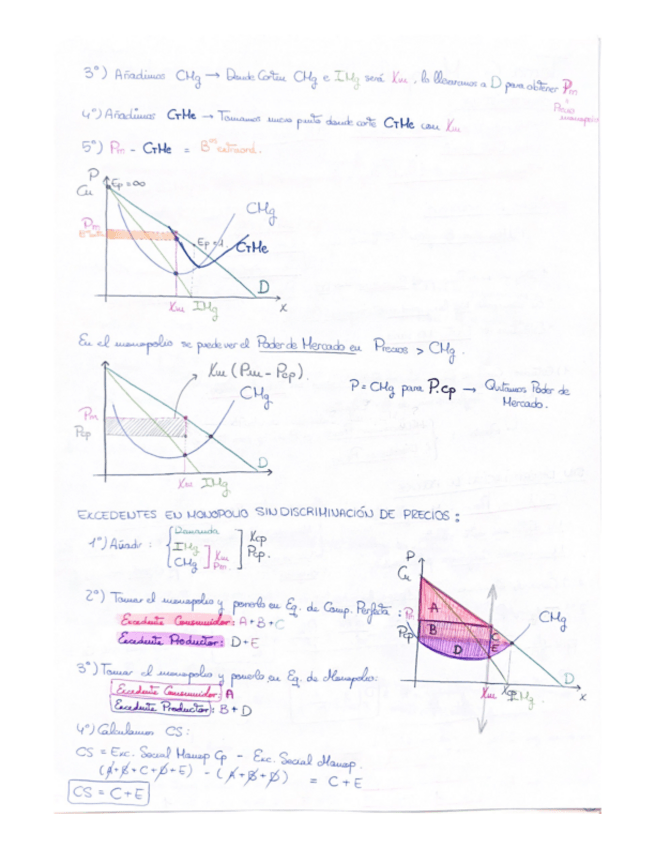 3º) Añadimos CMg → Donde Corten CMg e IMg será Xm. lo llevaremos a D para obtener Pm
=
Precio
monopolio
4º) Añadimos CTMe → Tomamos nuevo punto donde corte CTMe con Xm
5º) Pm - CTMe = Bº extraord.
P
Cu
Ep = ∞
Pm
CMg
Ep = 1
CTMe
D
Xm IMg
x
En el monopolio se puede ver el Poder de Mercado en Precios > CMg.
Xm (Pm - Pcp).
CMg
P = CMg para P.cp → Quitamos Poder de
Mercado.
Pm
Pcp
D
Xm IMg
EXCEDENTES EN MONOPOLIO SIN DISCRIMINACIÓN DE PRECIOS:
1º) Añadir: Demanda
IMg
CMg
Xm
Pm
Xcp
Pcp.
2º) Tomar el monopolio y ponerlo en Eq. de Comp. Perfecta:
Excedente Consumidor: A+B+C
Excedente Productor: D+E
3º) Tomar el monopolio y ponerlo en Eq. de Monopolio:
Excedente Consumidor: A
Excedente Productor: B+D
4º) Calculamos CS:
CS = Exc. Social Monop Cp - Exc. Social Monop.
(A+B+C+D+E) - (A+B+D) = C+E
CS = C+E
P
Cu
A
Pm
B
C
Pcp
D
E
CMg
D
Xm Xcp IMg
x